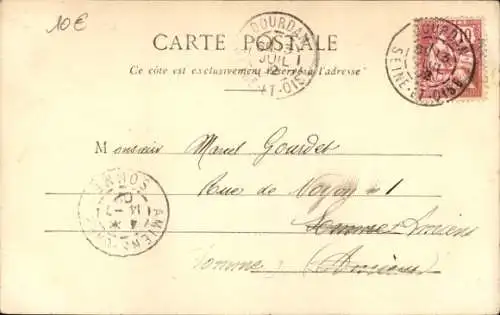 10€
CARTE POSTALE
Ce côté est exclusivement réservé à l'adresse
DOURDAN
JUIL
ET-OISE
DOURDAN
SEINE-ET-OISE
10
Monsieur Marcel Gourdet
Rue de Noyon 1
Somme Amiens
Somme (Amiens)
AMIENS
SOMME
14 - 7